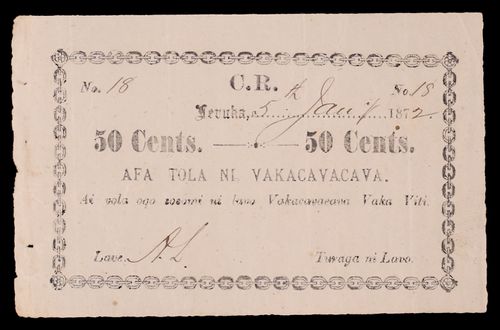 No. 18 C.R. No. 18
Levuka, 5th Jany 1872.
50 Cents. 50 Cents.
AFA TOLA NI VAKACAVACAVA.
Ai vola ogo ni lavo Vakacavacava Vaka Viti.
Lave. A.L Tuvaga ni Lavo.